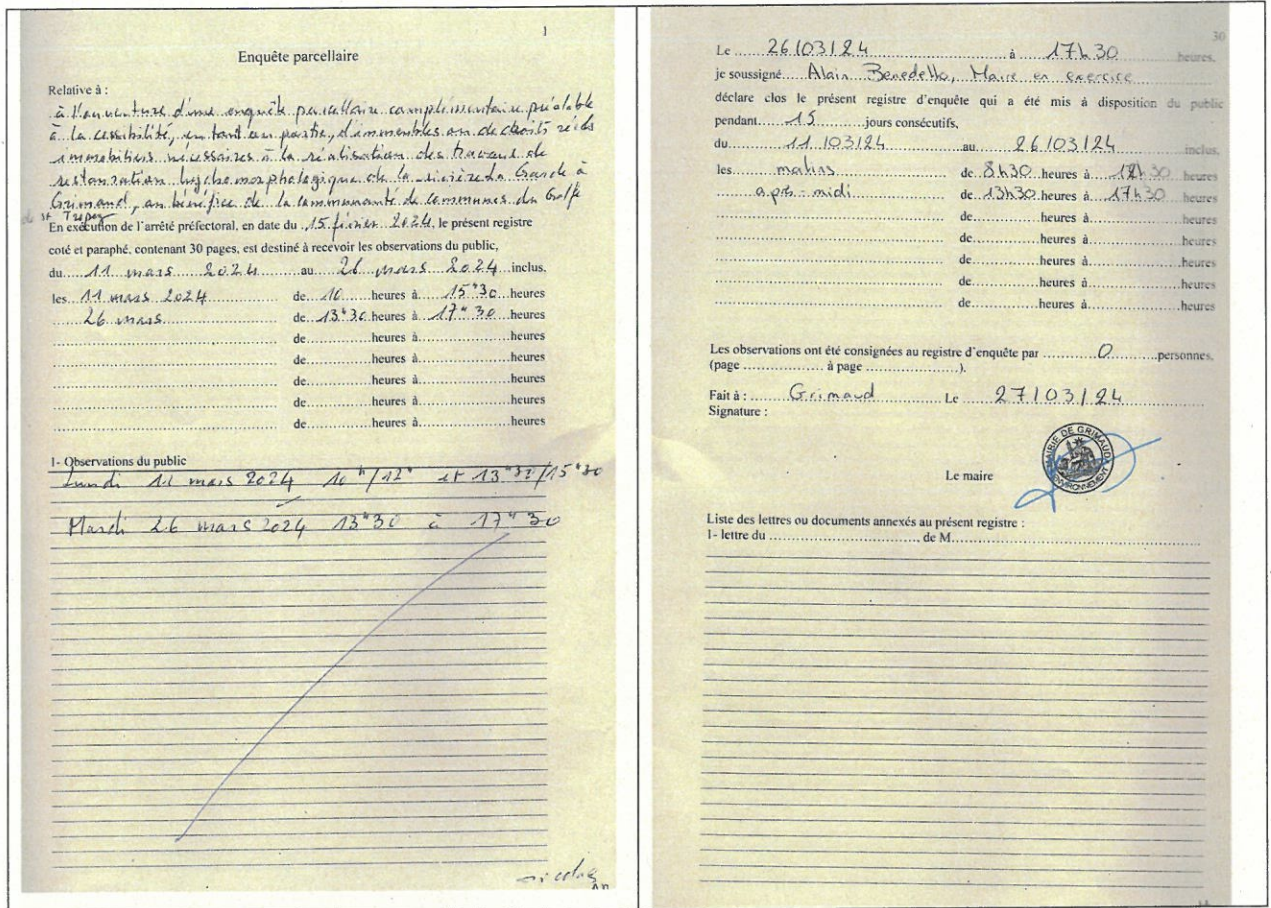 1
Enquête parcellaire
Relative à :
à l'ouverture d'une enquête parcellaire complémentaire préalable
à la cessibilité, en tout ou partie, d'immeubles ou de droits réels
immobiliers nécessaires à la réalisation des travaux de
restauration hydromorphologique de la rivière La Garde à
Grimaud, au bénéfice de la communauté de communes du Golfe
de St Tropez
En exécution de l'arrêté préfectoral, en date du 15 février 2024, le présent registre
coté et paraphé, contenant 30 pages, est destiné à recevoir les observations du public,
du 11 mars 2024 au 26 mars 2024 inclus,
les 11 mars 2024 de 10 heures à 15h30 heures
26 mars de 13h30 heures à 17h30 heures
de heures à heures
de heures à heures
de heures à heures
de heures à heures
de heures à heures
1- Observations du public
Lundi 11 mars 2024 10h/12h et 13h30/15h30
Mardi 26 mars 2024 13h30 à 17h30
30
Le 26/03/24 à 17h30 heures,
je soussigné Alain Benedetto, Maire en exercice
déclare clos le présent registre d'enquête qui a été mis à disposition du public
pendant 15 jours consécutifs,
du 11/03/24 au 26/03/24 inclus,
les matins de 8h30 heures à 12h30 heures
après-midi de 13h30 heures à 17h30 heures
de heures à heures
de heures à heures
de heures à heures
de heures à heures
de heures à heures
Les observations ont été consignées au registre d'enquête par 0 personnes.
(page à page ).
Fait à : Grimaud Le 27/03/24
Signature :
MAIRIE DE GRIMAUD
ENVIRONNEMENT
Le maire
Liste des lettres ou documents annexés au présent registre :
1- lettre du , de M